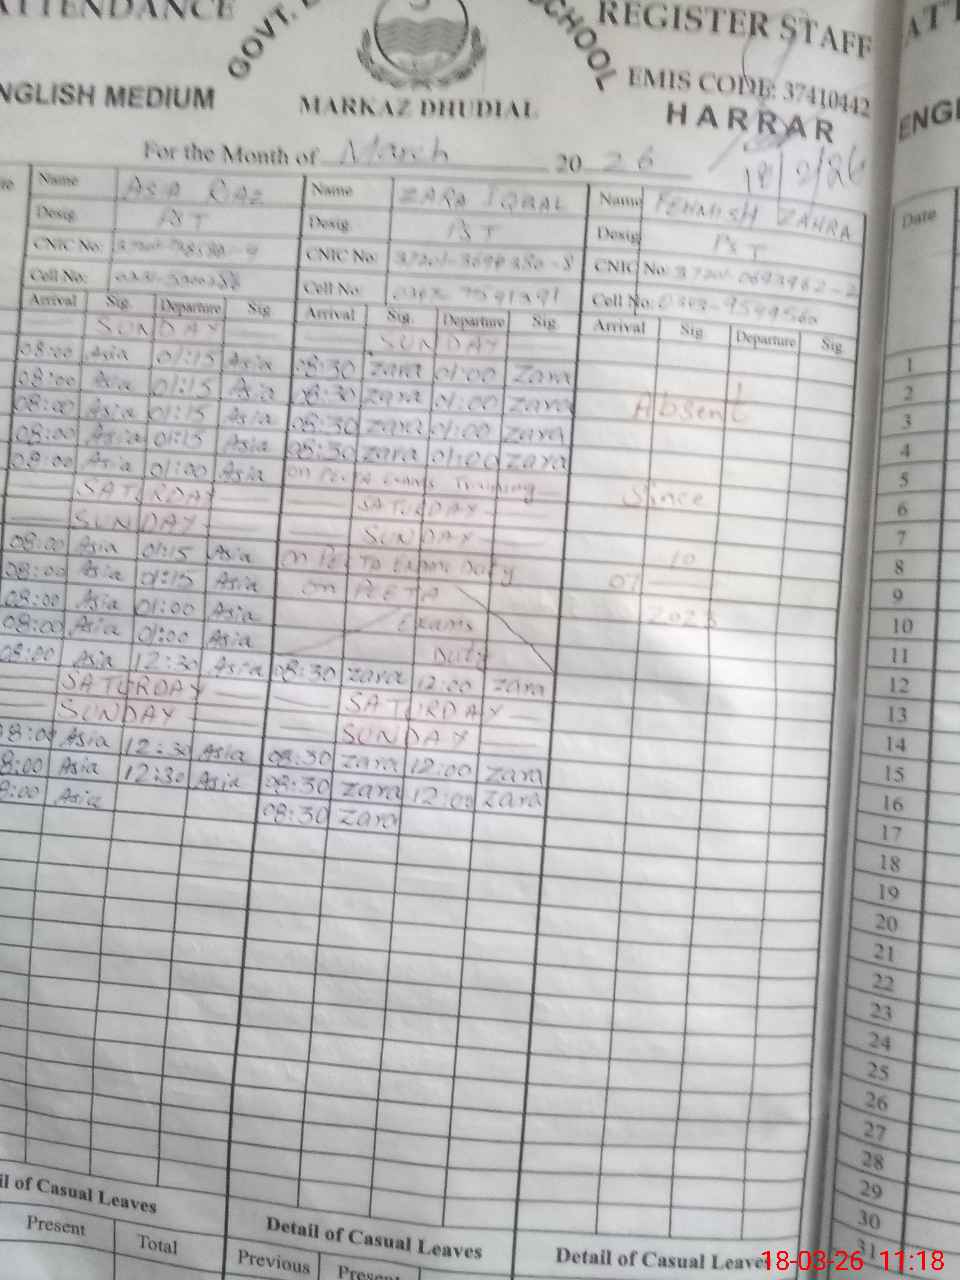 ATTENDANCE GOVT. SCHOOL REGISTER STAFF
ENGLISH MEDIUM MARKAZ DHUDIAL EMIS CODE: 37410442
HARRAR
For the Month of March 20 26
Name ASIA RIAZ Name ZARA IQBAL Name ZAHRA
Desig. PST Desig. PST Desig. PST
CNIC No: CNIC No: CNIC No:
Cell No: Cell No: Cell No:
Arrival Sig. Departure Sig. Arrival Sig. Departure Sig. Arrival Sig. Departure Sig.
SUNDAY SUNDAY
08:00 Asia 01:15 Asia 08:30 zara 01:00 zara
08:00 Asia 01:15 Asia 08:30 zara 01:00 zara Absent
08:00 Asia 01:15 Asia 08:30 zara 01:00 zara
08:00 Asia 01:15 Asia 08:30 zara 01:00 zara
08:00 Asia 01:00 Asia on Exams Training Since
SATURDAY SATURDAY
SUNDAY SUNDAY
08:00 Asia 01:15 Asia on Duty 10
08:00 Asia 01:15 Asia on 07
08:00 Asia 01:00 Asia Exams
08:00 Asia 01:00 Asia Duty
08:00 Asia 12:30 Asia 08:30 zara 12:00 zara
SATURDAY SATURDAY
SUNDAY SUNDAY
08:00 Asia 12:30 Asia 08:30 zara 12:00 zara
8:00 Asia 12:30 Asia 08:30 zara 12:00 zara
8:00 Asia 08:30 zara
Detail of Casual Leaves Detail of Casual Leaves Detail of Casual Leave
Present Total Previous Present
Date
1
2
3
4
5
6
7
8
9
10
11
12
13
14
15
16
17
18
19
20
21
22
23
24
25
26
27
28
29
30
31
18-03-26 11:18